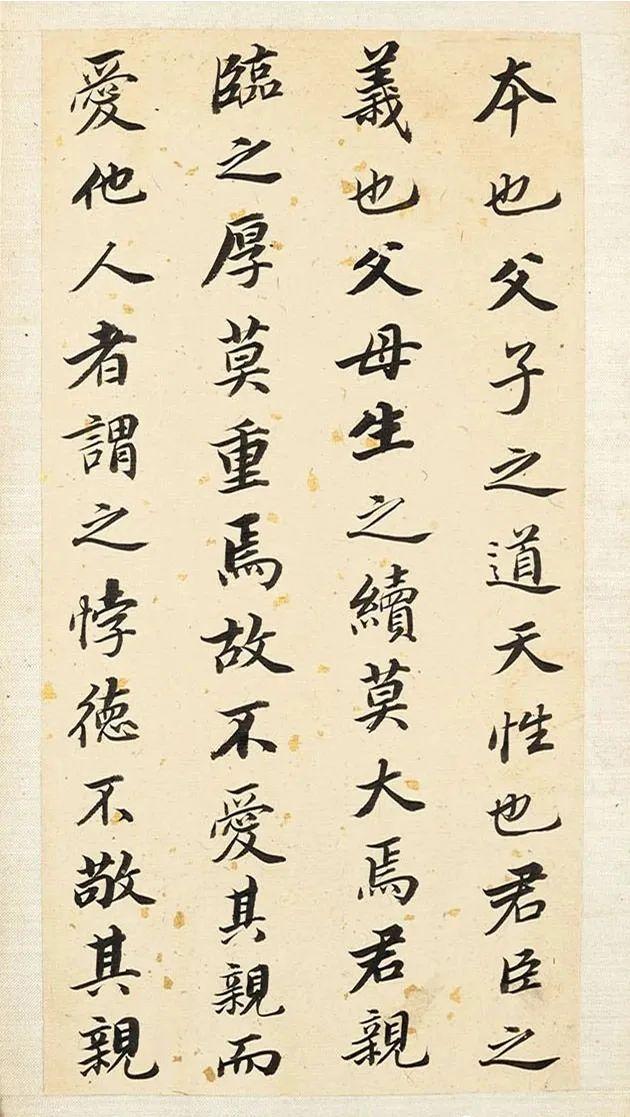 本也父子之道天性也君臣之
義也父母生之續莫大焉君親
臨之厚莫重焉故不愛其親而
愛他人者謂之悖德不敬其親